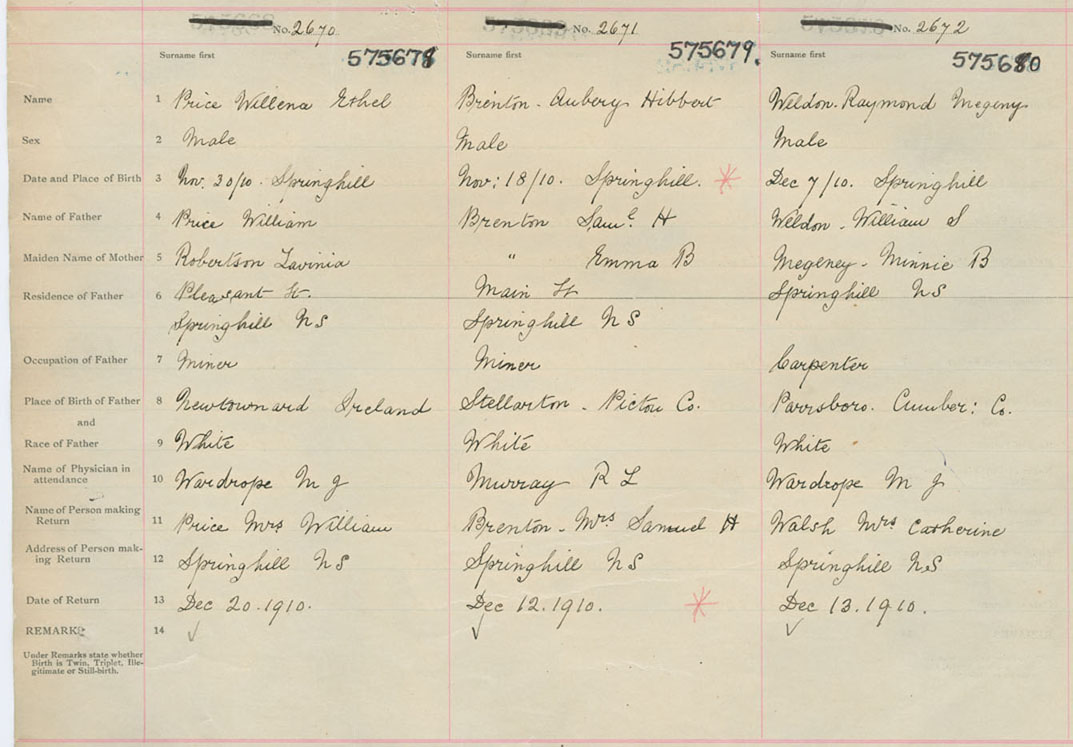 No. 2670
Surname first
575678
No. 2671
Surname first
575679.
No. 2672
Surname first
575680
Name 1 Price Willena Ethel
Brenton - Aubery Hibbert
Weldon. Raymond Megeny
Sex 2 Male
Male
Male
Date and Place of Birth 3 Nov. 30/10. Springhill
Nov: 18/10. Springhill.
Dec 7/10. Springhill
Name of Father 4 Price William
Brenton Saml. H
Weldon - William S
Maiden Name of Mother 5 Robertson Lavinia
" Emma B
Megeney - Minnie B
Residence of Father 6 Pleasant St.
Springhill NS
Main St
Springhill NS
Springhill NS
Occupation of Father 7 Miner
Miner
Carpenter
Place of Birth of Father 8 Newtownard Ireland
Stellarton - Pictou Co.
Parrsboro. Cumber: Co.
and
Race of Father 9 White
White
White
Name of Physician in
attendance 10 Wardrope M J
Murray R L
Wardrope M J
Name of Person making
Return 11 Price Mrs William
Brenton - Mrs Samuel H
Walsh Mrs Catherine
Address of Person mak-
ing Return 12 Springhill NS
Springhill NS
Springhill N.S
Date of Return 13 Dec 20.1910.
Dec 12.1910.
Dec 13.1910.
REMARKS 14
Under Remarks state whether
Birth is Twin, Triplet, Ille-
gitimate or Still-birth.